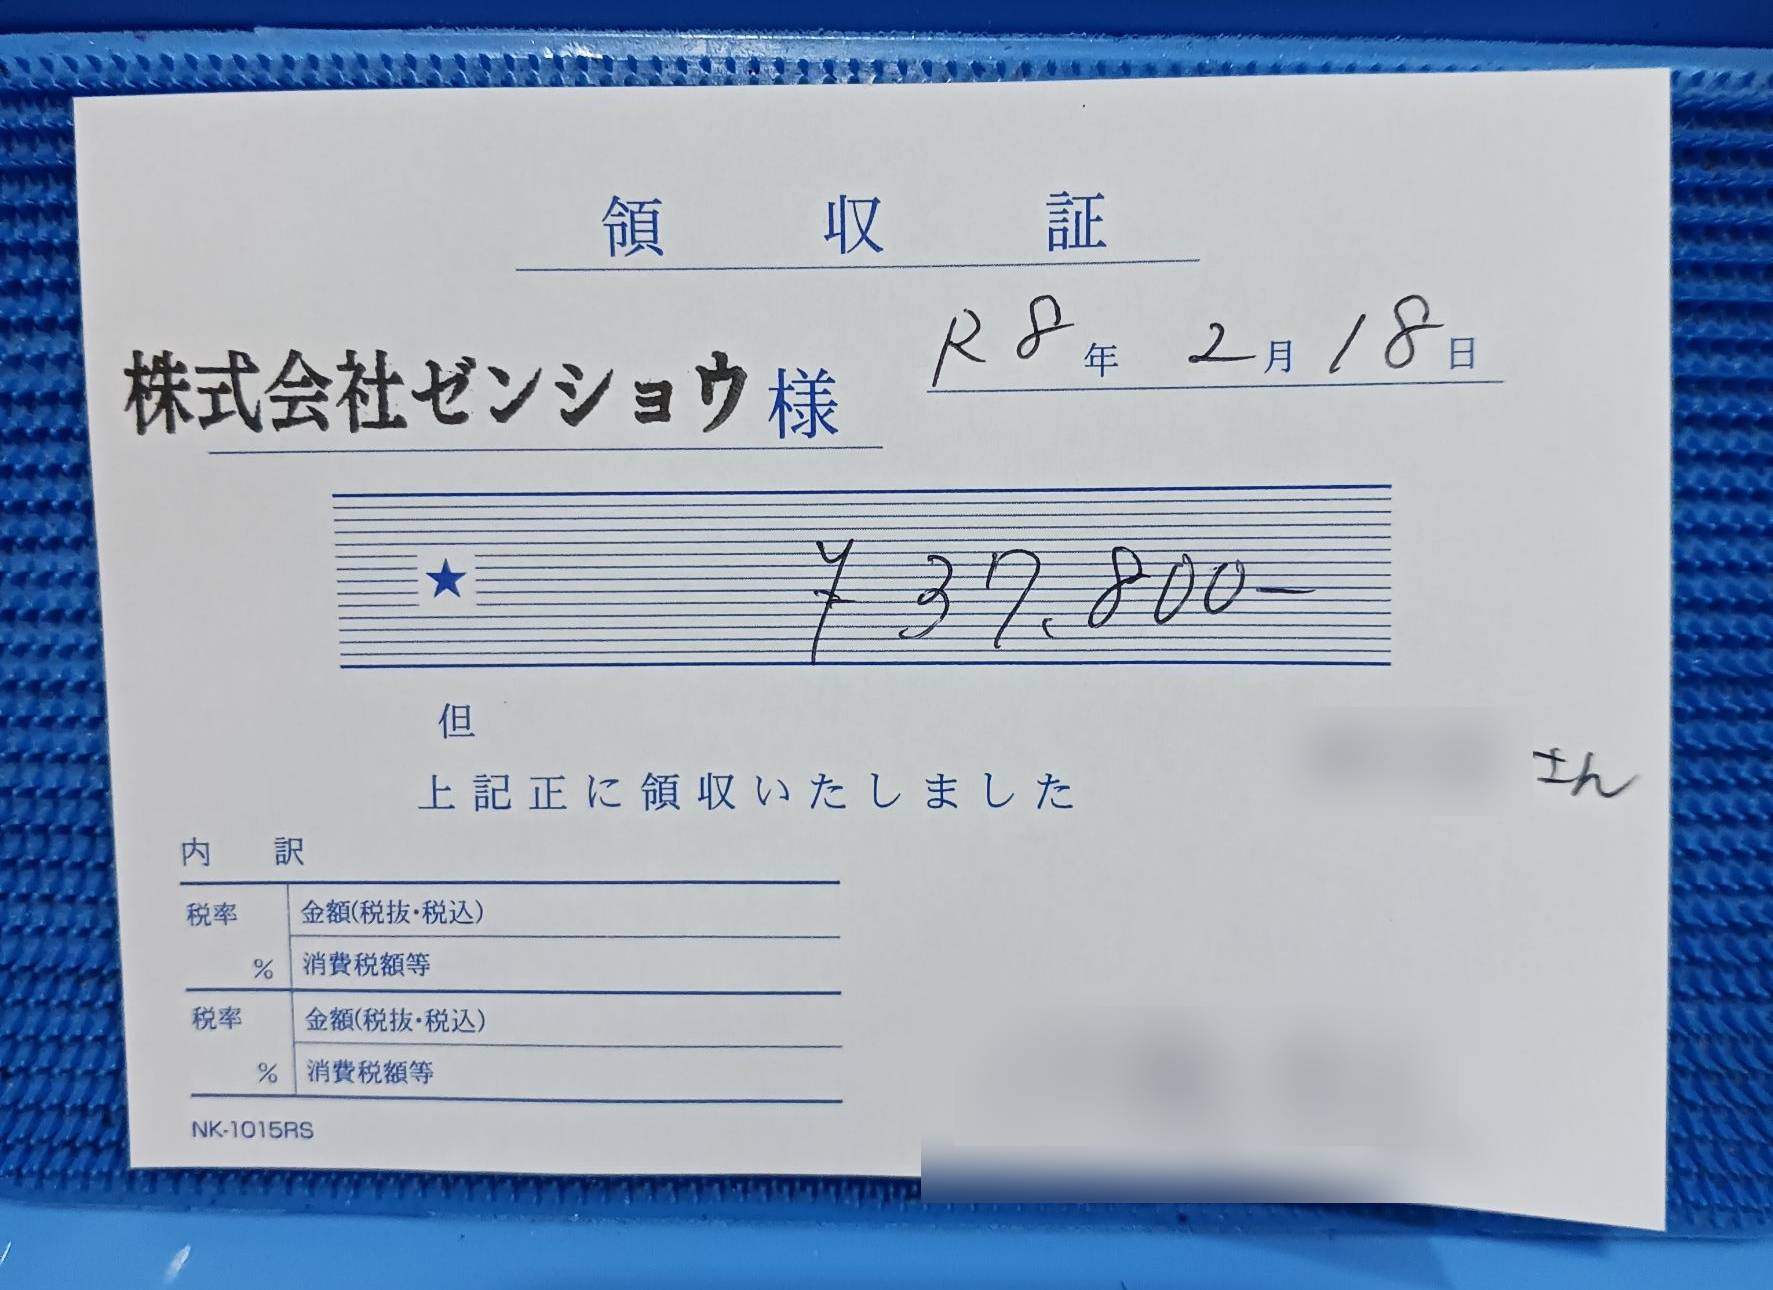 領収証
R8年 2月18日
株式会社ゼンショウ様
★ ¥37,800-
但
上記正に領収いたしました
さん
内訳
税率 % 金額(税抜・税込)
消費税額等
税率 % 金額(税抜・税込)
消費税額等
NK-1015RS